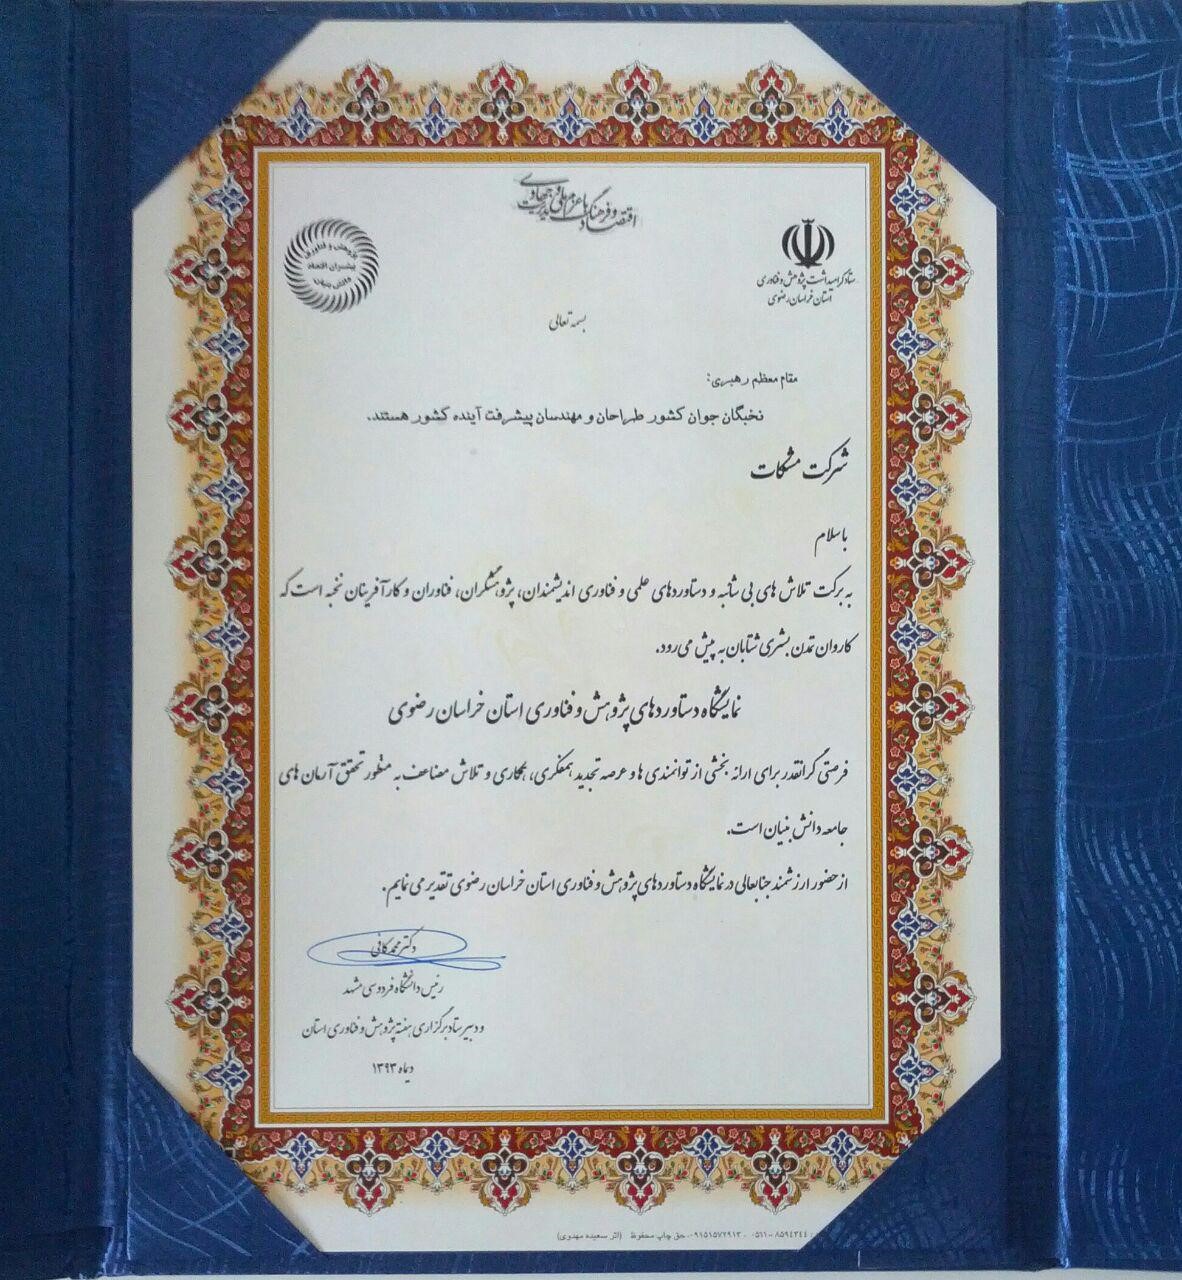 اقتصاد و فرهنگ با عزم ملی و مدیریت جهادی
ستاد گرامیداشت پژوهش و فناوری
استان خراسان رضوی
پژوهش و فناوری
پیشران اقتصاد
دانش بنیان
بسمه تعالی
مقام معظم رهبری:
نخبگان جوان کشور طراحان و مهندسان پیشرفت آینده کشور هستند.
شرکت مشکات
با سلام
به برکت تلاش های بی شائبه و دستاوردهای علمی و فناوری اندیشمندان، پژوهشگران، فناوران و کارآفرینان نخبه است که
کاروان تمدن بشری شتابان به پیش می رود.
نمایشگاه دستاوردهای پژوهش و فناوری استان خراسان رضوی
فرصتی گرانقدر برای ارائه بخشی از توانمندی ها و عرصه تجدید همفکری، همکاری و تلاش مضاعف به منظور تحقق آرمان های
جامعه دانش بنیان است.
از حضور ارزشمند جنابعالی در نمایشگاه دستاوردهای پژوهش و فناوری استان خراسان رضوی تقدیر می نمایم.
دکتر محمد کافی
رئیس دانشگاه فردوسی مشهد
و دبیر ستاد برگزاری هفته پژوهش و فناوری استان
دیماه ۱۳۹۳
۰۵۱۱-۸۵۹۴۳۴۴ - ۰۹۱۵۱۵۷۲۹۱۳ حق چاپ محفوظ (اثر سعیده مهدوی)